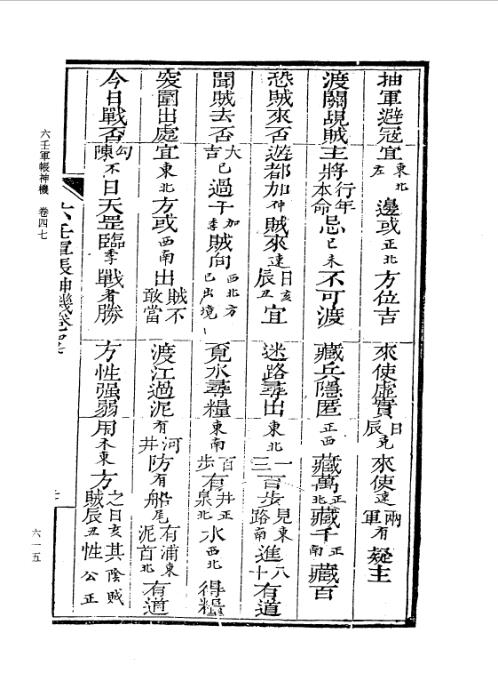 抽軍避冦宜東北左邊或正北方位吉 來使虛實日辰克來使速兩軍有疑主
渡關覘賊主將行年本命忌巳未不可渡 藏兵隱匿正西藏萬正北藏千正南藏百
恐賊來否遊都加神賊來速日亥辰丑宜 迷路尋出東北一三百步見東路南進八十有道
聞賊去否大吉已過子加季賊向西北方已出境 覓水尋糧東南百步有井正泉北水西北得糧
突圍出處宜東北方或西南出賊不敢當 渡江過泥有河井防有船尾有浦東泥首北有道
今日戰否勾陳不日天罡臨季戰者勝 方性强弱用木東方之日亥賊辰丑其陰賊性公正
六壬軍帳神機卷四七
六壬軍帳神機 卷四七
六一五